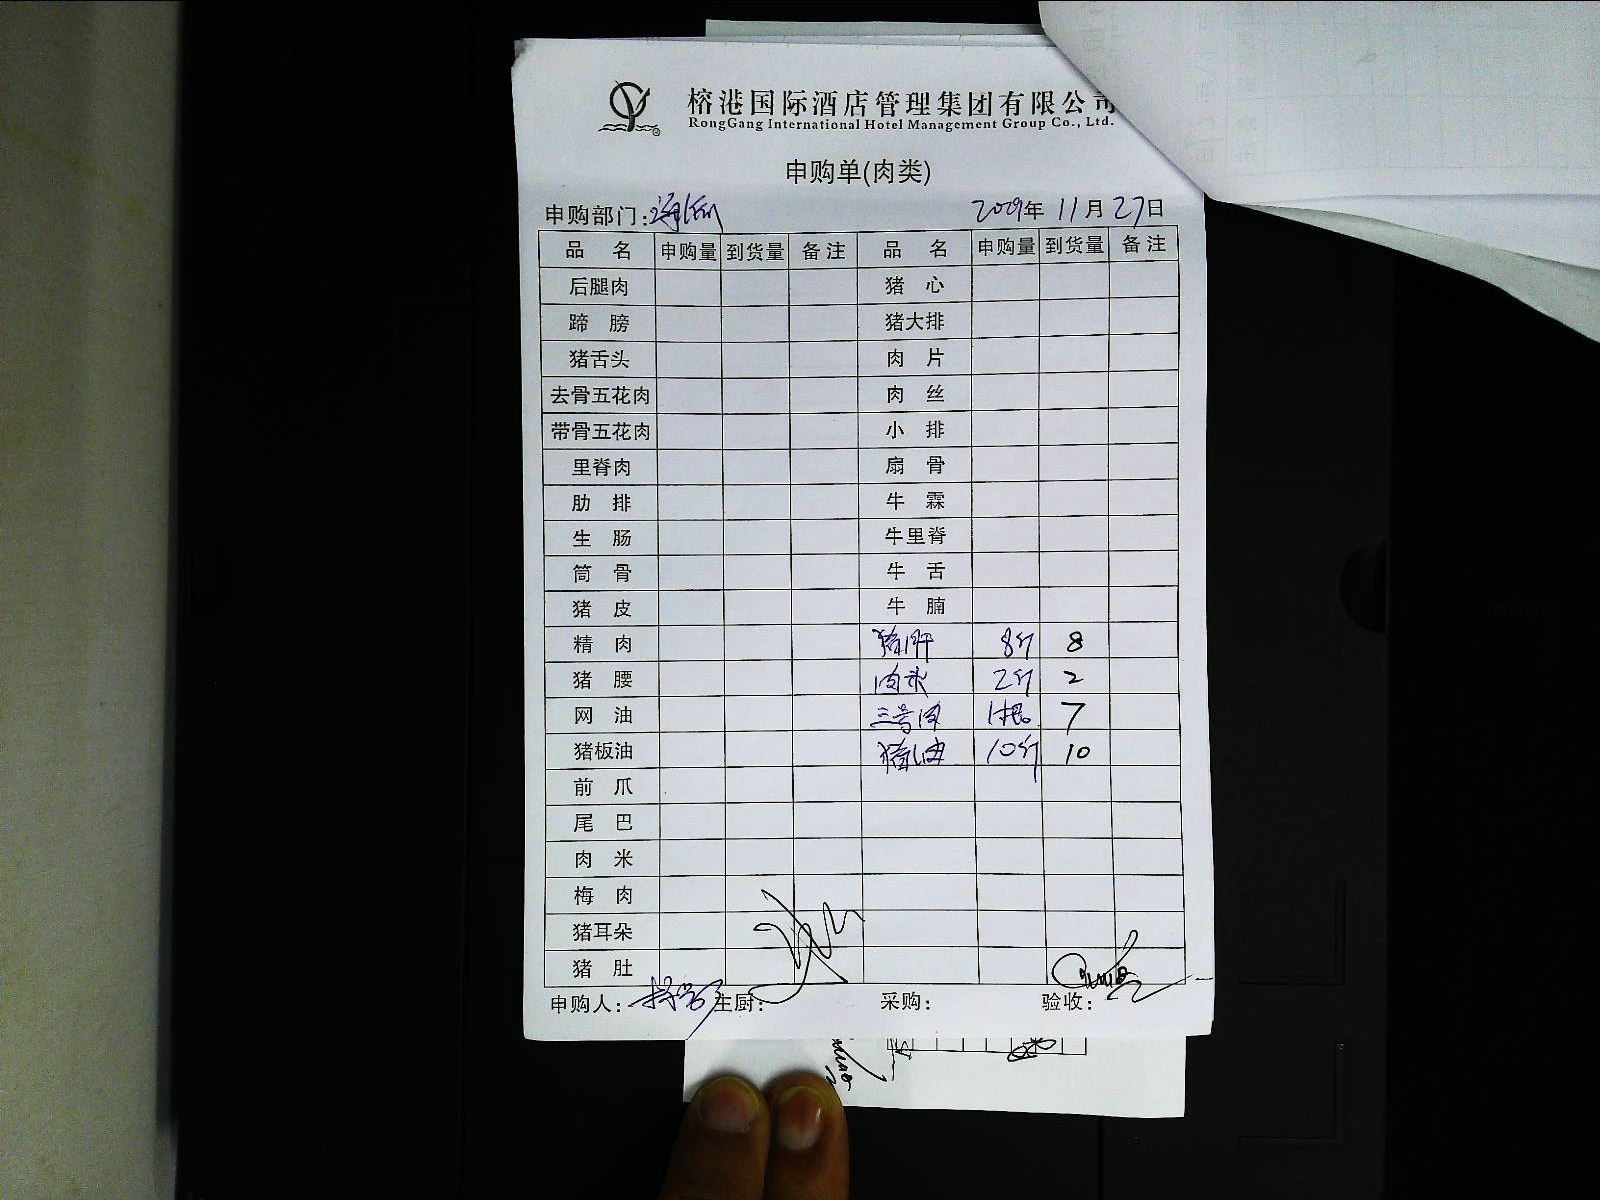 榕港国际酒店管理集团有限公司
RongGang International Hotel Management Group Co., Ltd.
申购单(肉类)
申购部门: 2009年 11月 27日
品 名 申购量 到货量 备注 品 名 申购量 到货量 备注
后腿肉 猪 心
蹄 膀 猪大排
猪舌头 肉 片
去骨五花肉 肉 丝
带骨五花肉 小 排
里脊肉 扇 骨
肋 排 牛 霖
生 肠 牛里脊
筒 骨 牛 舌
猪 皮 牛 腩
精 肉 猪肝 8斤 8
猪 腰 肉米 2斤 2
网 油 三号肉 7
猪板油 猪油 10斤 10
前 爪
尾 巴
肉 米
梅 肉
猪耳朵
猪 肚
申购人: 主厨: 采购: 验收: